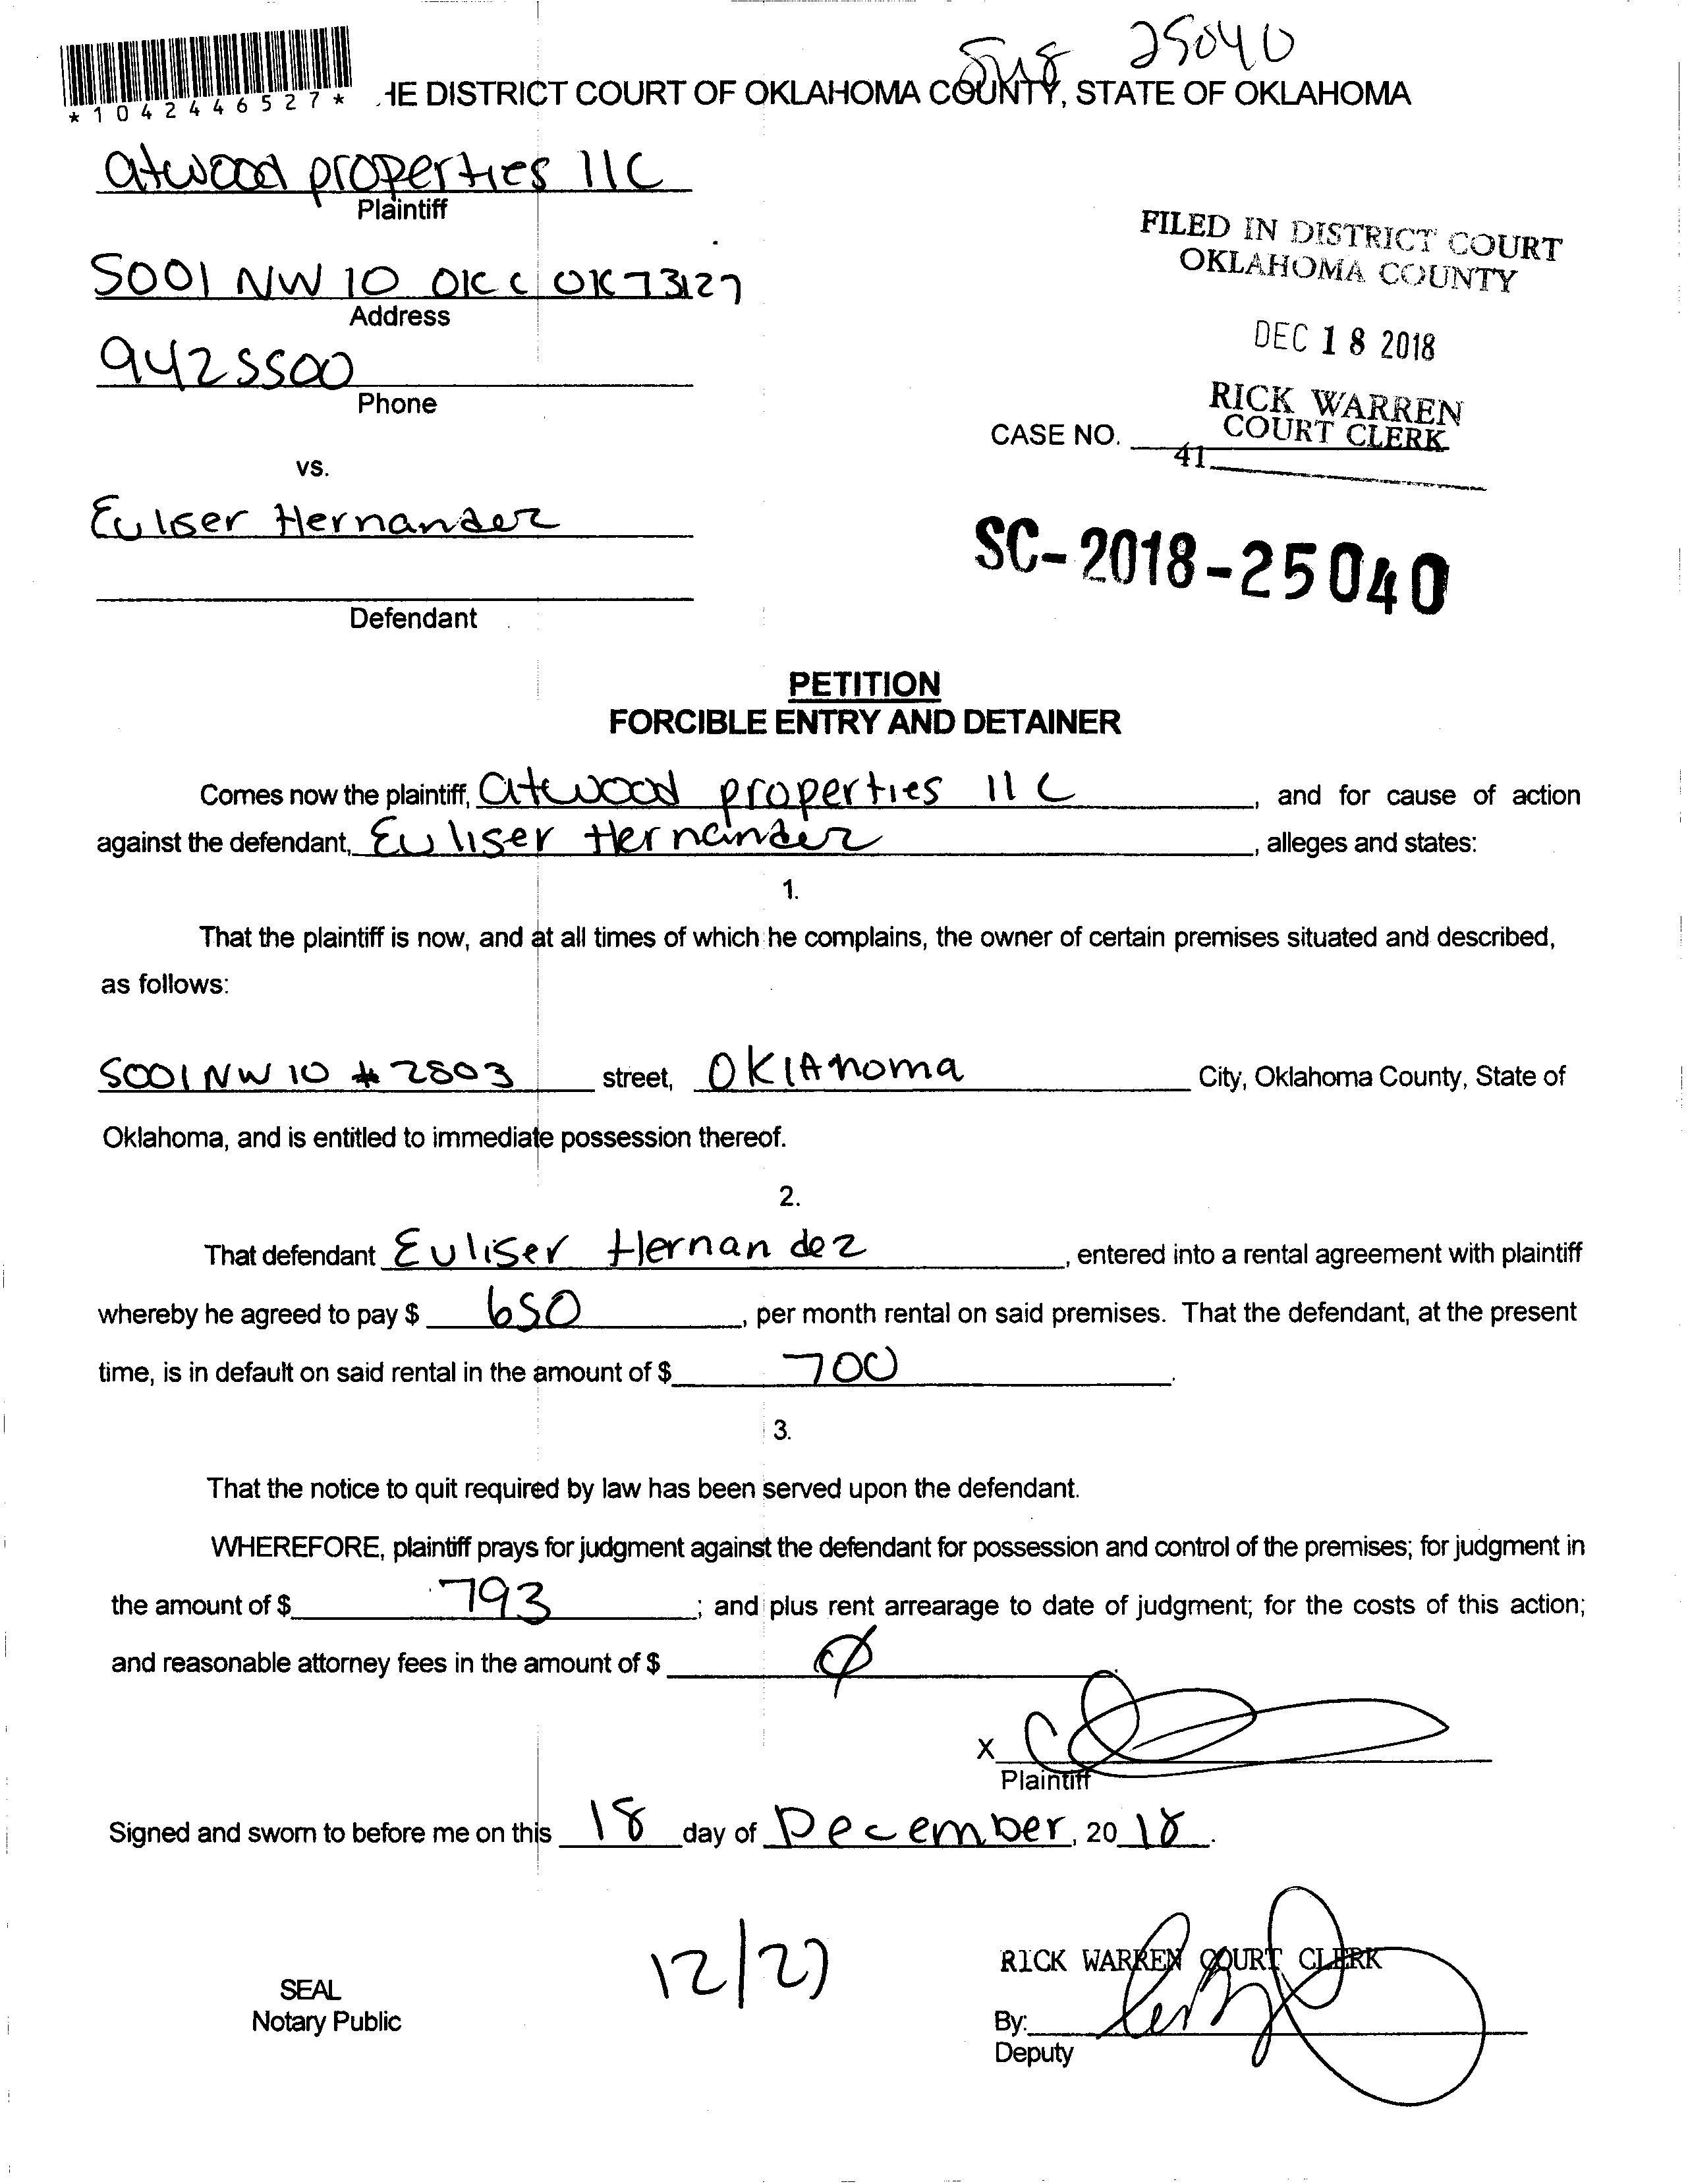 25040
*1042446527* HE DISTRICT COURT OF OKLAHOMA COUNTY, STATE OF OKLAHOMA
atwood properties llc
Plaintiff
5001 NW 10 OKC OK 73127
Address
9425500
Phone
vs.
Eulser Hernandez
Defendant
FILED IN DISTRICT COURT
OKLAHOMA COUNTY
DEC 18 2018
RICK WARREN
COURT CLERK
CASE NO.
41
SC-2018-25040
PETITION
FORCIBLE ENTRY AND DETAINER
Comes now the plaintiff, atwood properties llc, and for cause of action
against the defendant, Euliser Hernandez, alleges and states:
1.
That the plaintiff is now, and at all times of which he complains, the owner of certain premises situated and described,
as follows:
5001 NW 10 # 2803 street, OKlAhoma City, Oklahoma County, State of
Oklahoma, and is entitled to immediate possession thereof.
2.
That defendant Euliser Hernandez, entered into a rental agreement with plaintiff
whereby he agreed to pay $ 650, per month rental on said premises. That the defendant, at the present
time, is in default on said rental in the amount of $ 700.
3.
That the notice to quit required by law has been served upon the defendant.
WHEREFORE, plaintiff prays for judgment against the defendant for possession and control of the premises; for judgment in
the amount of $ 793; and plus rent arrearage to date of judgment; for the costs of this action;
and reasonable attorney fees in the amount of $ Ø
X
Plaintiff
Signed and sworn to before me on this 18 day of December, 20 18.
12/27
SEAL
Notary Public
RICK WARREN COURT CLERK
By:
Deputy